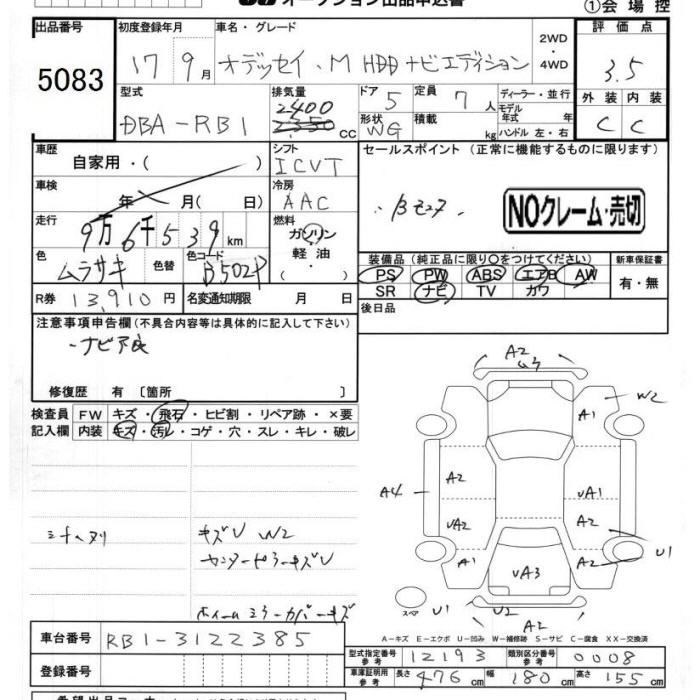 オークション出品申込書
①会場控
出品番号
5083
初度登録年月
17 9月
車名・グレード
オデッセイ・M HDDナビエディション
2WD
・
4WD
評価点
3.5
外装 内装
C C
型式
DBA-RB1
排気量
2400
2350 CC
ドア 5
形状 WG
定員 7人
積載 kg
ディーラー・並行
モデル
年式 年
ハンドル 左・右
車歴
自家用・( )
シフト
ICVT
車検
年 月( 日)
冷房
AAC
走行
9万6千539km
燃料
ガソリン
軽油
・
色
ムラサキ
色替
色コード
B502P
R券 13,910円
名変通知期限 月 日
セールスポイント(正常に機能するものに限ります)
NOクレーム・売切
装備品(純正品に限り○をつけてください)
PS PW ABS エアB AW
SR ナビ TV カワ
新車保証書
有・無
後日品
注意事項申告欄(不具合内容等は具体的に記入して下さい)
・ナビ不良
修復歴 有 〔箇所 〕
検査員 FW キズ・飛石・ヒビ割・リペア跡・×要
記入欄 内装 キズ・汚レ・コゲ・穴・スレ・キレ・破レ
キズU W2
センターピラーキズU
ホイールミラーカバーキズ
A2
W2
A1
A2
A4
UA1
UA2
A2
A2
U1
A1
UA3
スペア
U1
U2
A2
A-キズ E-エクボ U-凹み W-補修跡 S-サビ C-腐食 XX-交換済
車台番号 RB1-3122385
登録番号
型式指定番号
参考
12193
類別区分番号
参考
0008
車庫証明用
参考
長さ 476cm 幅 180cm 高さ 155cm